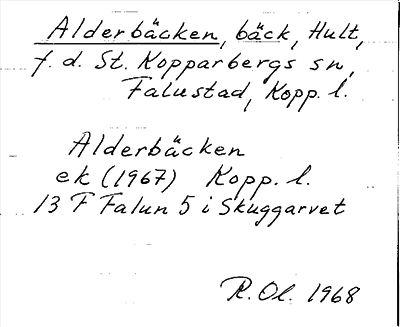 Alderbäcken, bäck, Hult,
f. d. St. Kopparbergs sn,
Falustad, Kopp. l.
Alderbäcken
ek (1967) Kopp. l.
13 F Falun 5 i Skuggarvet
R. Ol. 1968